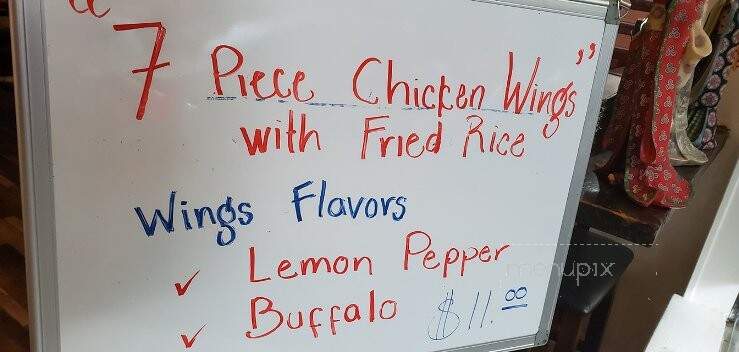 “7 Piece Chicken Wings”
with Fried Rice
Wings Flavors
✓ Lemon Pepper
✓ Buffalo $11.00
menupix